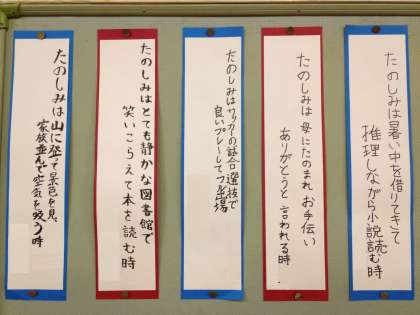 たのしみは暑い中を借りてきて
推理しながら小説読む時
たのしみは母にたのまれお手伝い
ありがとうと言われる時
たのしみはサッカーの試合選抜で
良いプレーしてフル出場
たのしみはとても静かな図書館で
笑いこらえて本を読む時
たのしみは山に登て景色を見
家族並んで空気を吸う時